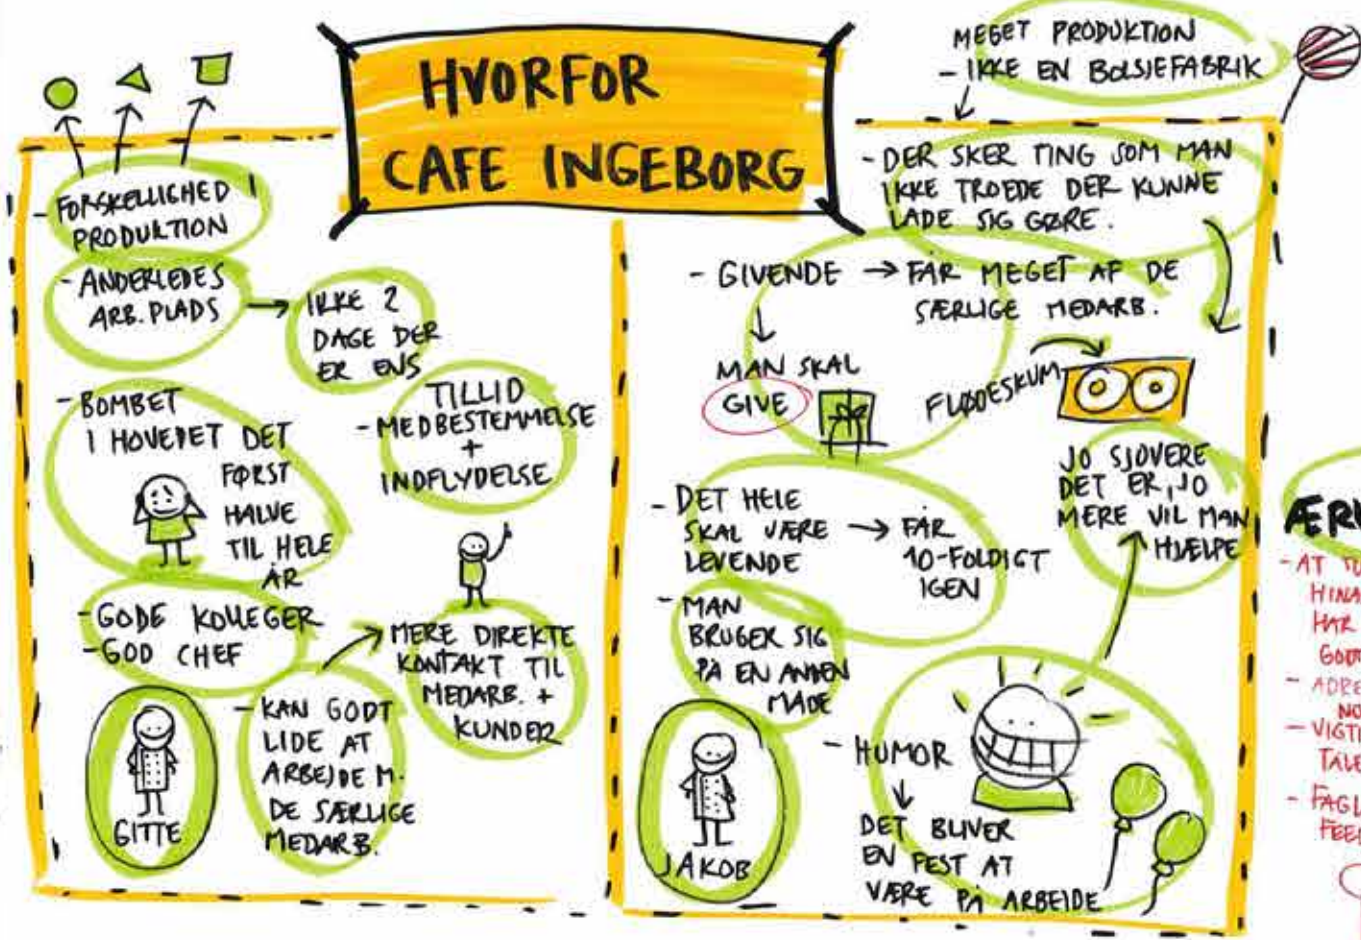 HVORFOR
CAFE INGEBORG
- FORSKELLIGHED I
PRODUKTION
- ANDERLEDES
ARB. PLADS
→ IKKE 2
DAGE DER
ER ENS
- BOMBET
I HOVEDET DET
FØRST
HALVE
TIL HELE
ÅR
TILLID
- MEDBESTEMMELSE
+
INDFLYDELSE
- GODE KOLLEGER
- GOD CHEF
MERE DIREKTE
KONTAKT TIL
MEDARB. +
KUNDER
- KAN GODT
LIDE AT
ARBEJDE M.
DE SÆRLIGE
MEDARB.
GITTE
MEGET PRODUKTION
- IKKE EN BOLSJEFABRIK
- DER SKER TING SOM MAN
IKKE TROEDE DER KUNNE
LADE SIG GØRE.
- GIVENDE → FÅR MEGET AF DE
SÆRLIGE MEDARB.
MAN SKAL
GIVE
FLØDESKUM
JO SJOVERE
DET ER, JO
MERE VIL MAN
HJÆLPE
- DET HELE
SKAL VÆRE
LEVENDE
→ FÅR
10-FOLDIGT
IGEN
- MAN
BRUGER SIG
PÅ EN ANDEN
MÅDE
JAKOB
- HUMOR
DET BLIVER
EN FEST AT
VÆRE PÅ ARBEJDE
- AT
HAR